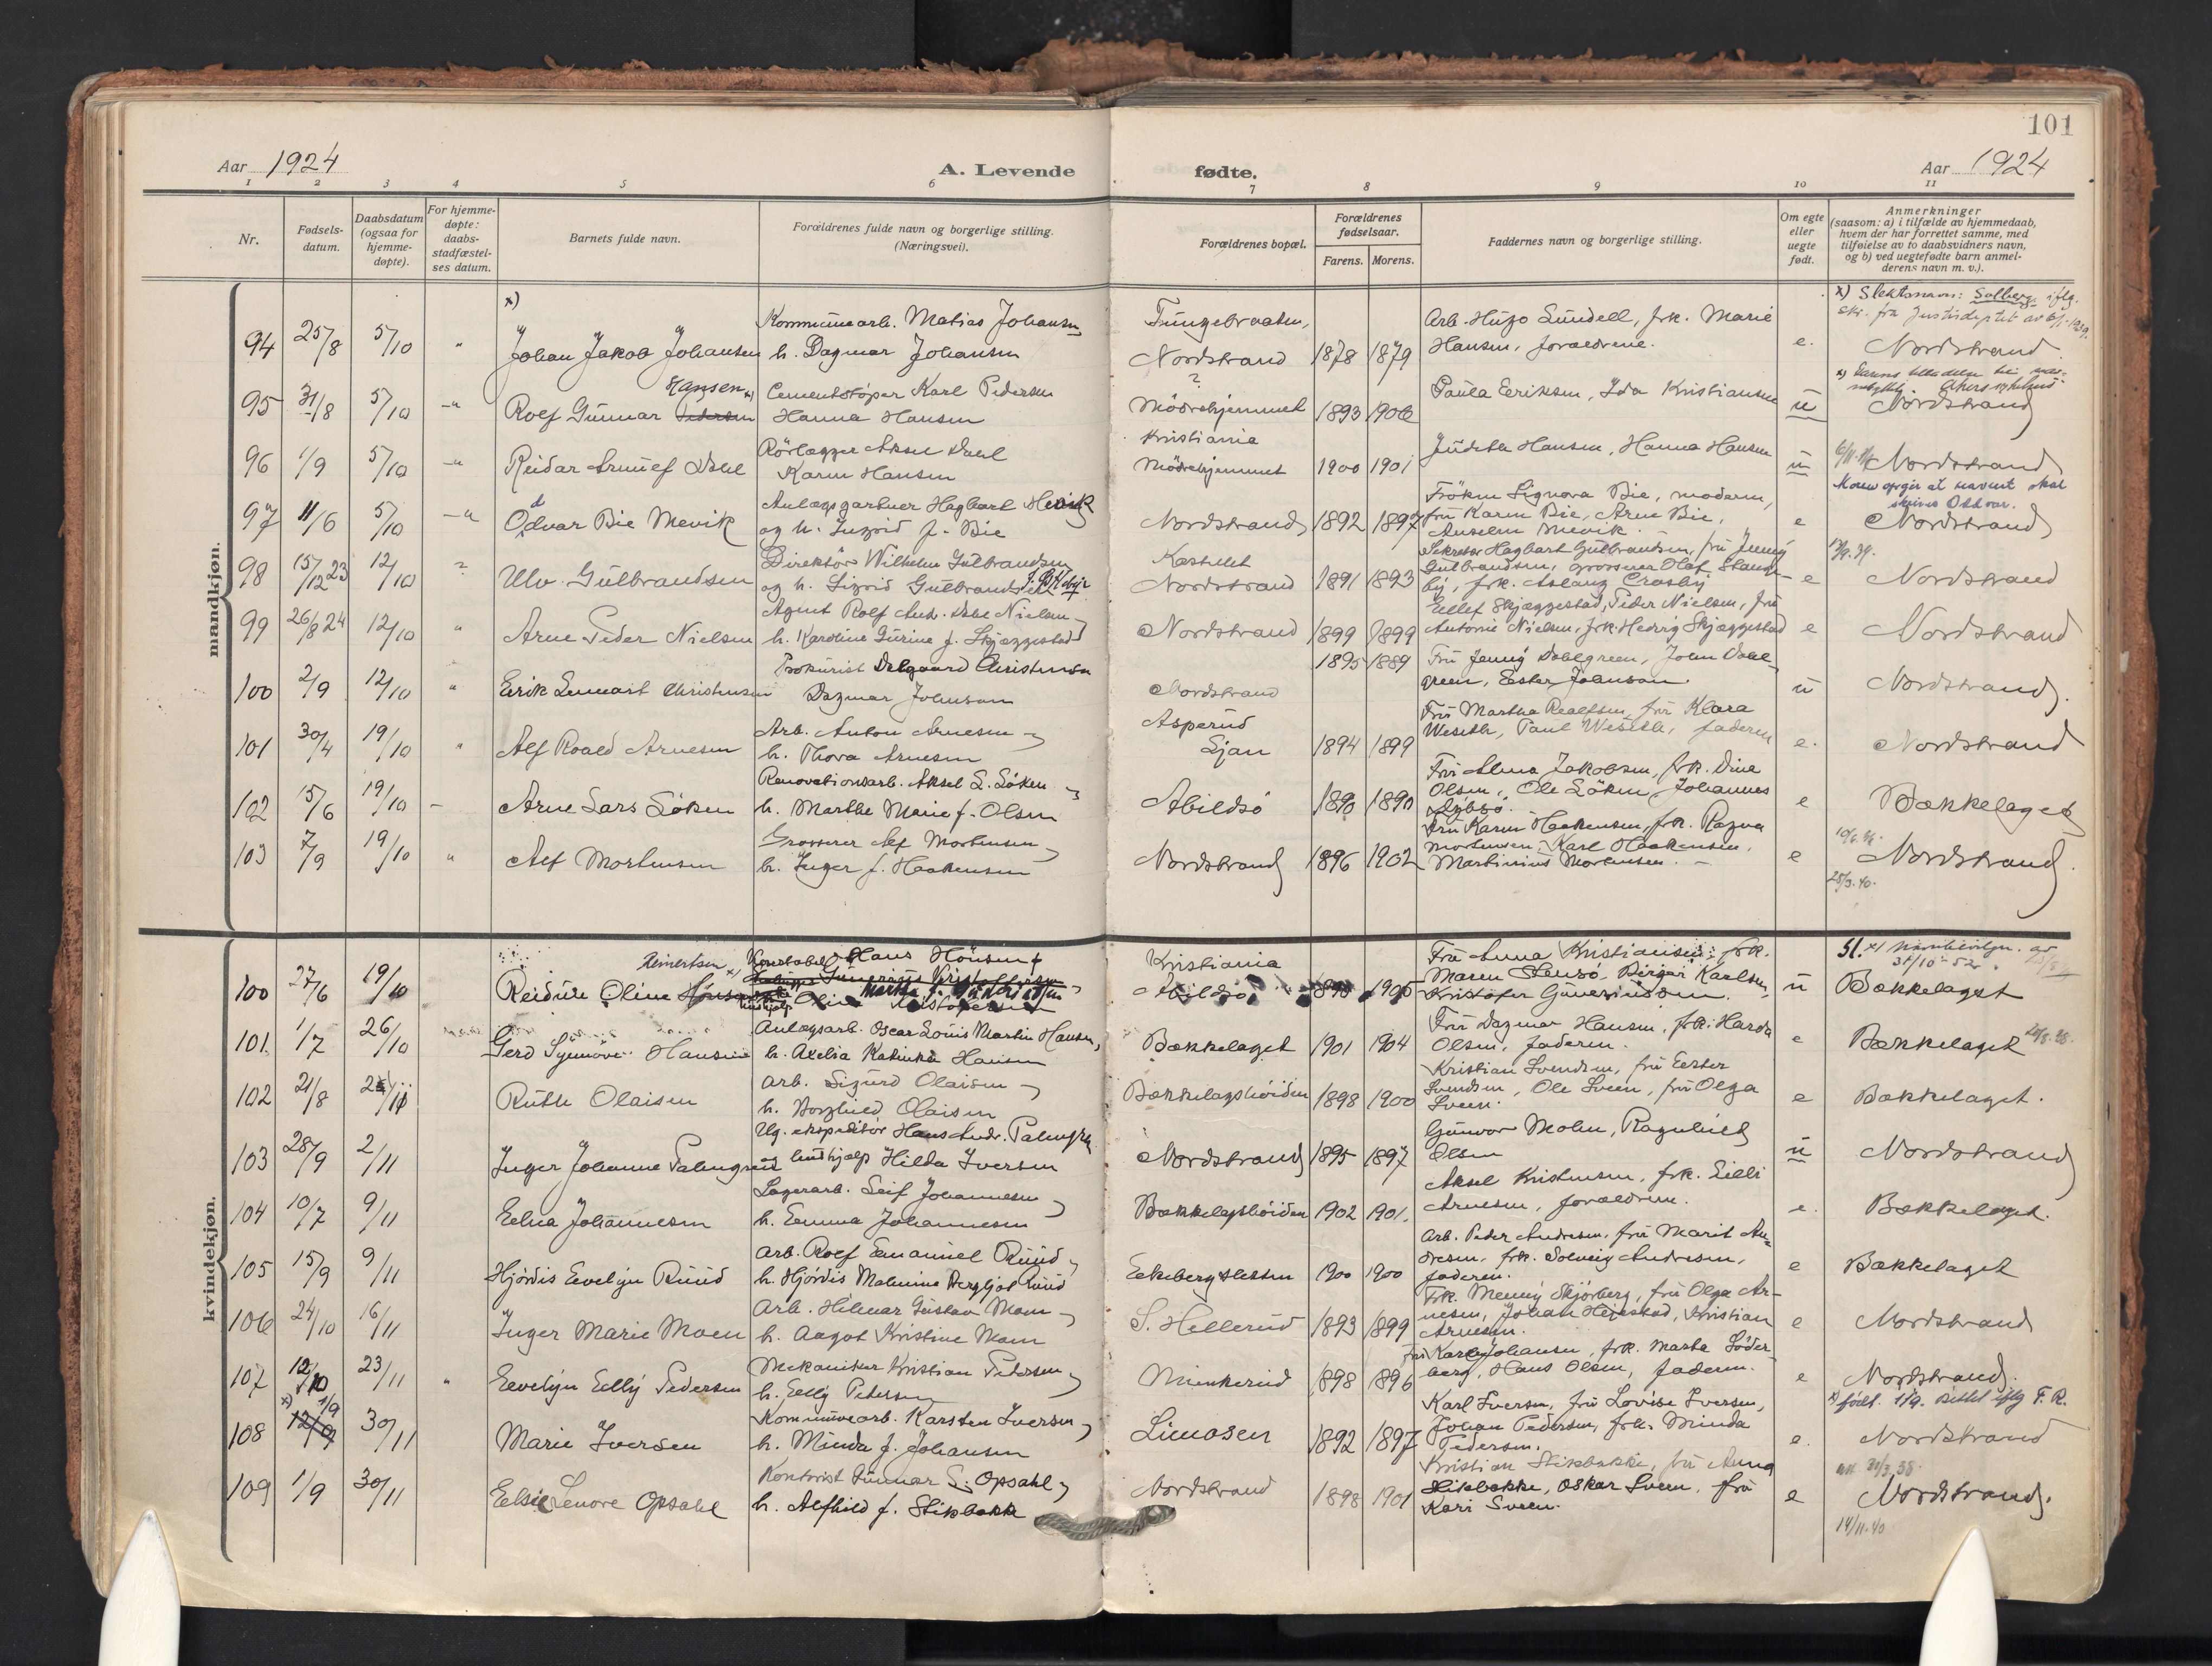 101
Aar 1924
A. Levende
fødte.
Aar 1924
1 2 3 4 5 6 7 8 9 10 11
Nr.
Fødsels-
datum.
Daabsdatum
(ogsaa for
hjemme-
døpte).
For hjemme-
døpte:
daabs-
stadfæstel-
ses datum.
Barnets fulde navn.
Forældrenes fulde navn og borgerlige stilling.
(Næringsvei).
Forældrenes bopæl.
Forældrenes
fødselsaar.
Farens. Morens.
Faddernes navn og borgerlige stilling.
Om egte
eller
uegte
født.
Anmerkninger
(saasom: a) i tilfælde av hjemmedaab,
hvem der har forrettet samme, med
tilføielse av to daabsvidners navn,
og b) ved uegtefødte barn anmel-
derens navn m. v.).
mandkjøn.
x)
94 25/8 5/10 " Johan Jakob Johansen
Kommunearb. Matias Johansen
h. Dagmar Johansen
Nordstrand 1878 1879
Arb. Hugo Lundell, frk. Marie
Hansen, forældrene.
e.
x) Slektsnavn: Solberg iflg.
skr. fra Justisdeptet av 6/1-1939.
Nordstrand.
95 31/8 5/10 -"- Rolf Gunnar Pedersen Hansen x)
Cementstøper Karl Pedersen
Hanna Hansen
?
Mødrehjemmet 1893 1906
Paula Eriksen, Ida Kristiansen
u
Nordstrand
96 1/9 5/10 -"- Reidar Arnulf Dahl
Rørlægger Aksel Dahl
Karen Hansen
Kristiania
Mødrehjemmet 1900 1901
Judith Hansen, Hanna Hansen
u
Nordstrand
97 11/6 5/10 -"- Odvar Bie Mevik
d
Anlægsgartner Hagbart Mevik
og h. Ingrid f. Bie
Nordstrand 1892 1897
Frøken Signora Bie, moderen,
fru Karen Bie, Arne Bie,
Anselm Mevik.
e
Moren opgir at navnet skal
skrives Oddvar.
Nordstrand
98 15/12 23 12/10 " Ulv Gulbrandsen
Direktør Wilhelm Gulbrandsen
og h. Sigrid Gulbrandsen
Kastellet
Nordstrand 1891 1893
Sekretær Hagbart Gulbrandsen, fru Jenny
Gulbrandsen, grosserer Olaf Stange-
by, frk. Aslaug Crosby
e
Nordstrand
99 26/8 24 12/10 " Arne Peder Nielsen
Agent Rolf And. Dahl Nielsen
h. Karoline Gurine f. Skjæggestad
Nordstrand 1899 1899
Ellef Skjæggestad, Peder Nielsen, fru
Antonie Nielsen, frk. Hedvig Skjæggestad
e
Nordstrand
100 2/9 12/10 " Erik Lennart Christensen
Prokurist Dalgaard Christensen
Dagmar Johnson
Nordstrand 1895 1889
Fru Jenny Dahlgreen, John Dahl-
green, Ester Johnson.
u
Nordstrand.
101 30/4 19/10 " Alf Roald Arnesen
Arb. Anton Arnesen
h. Thora Arnesen
Asperud
Ljan 1894 1899
Fru Martha Realfsen, fru Klara
Weseth, Paul Weseth, faderen
e.
Nordstrand
102 15/6 19/10 - Arne Lars Løken
Renovationsarb. Aksel L. Løken
h. Marthe Marie f. Olsen
Abildsø 1890 1890
Fru Alma Jakobsen, frk. Dina
Olsen, Ole Løken, Johannes
e
Bækkelaget
103 7/9 19/10 " Alf Mortensen
Grosserer Alf Mortensen
h. Inger f. Haakensen
Nordstrand 1896 1902
Fru Karen Haakensen, frk. Ragna
Mortensen, Karl Haakensen,
Martinius Mortensen. -
e
Nordstrand.
25/3.40.
kvindekjøn.
100 27/6 19/10 Reidun Oline Reinertsen x)
Konstabel Hans Hönsen
Kristiania
Abildsø 1905
Fru Anna Kristiansen, frk.
Maren Stensø, Birger Karlsen,
Kristofer Gunerius
u
31/10-52
Bækkelaget
101 1/7 26/10 Gerd Synnøve Hansen
Anlægsarb. Oscar Louis Martin Hansen,
h. Axelia Katinka Hansen
Bækkelaget 1901 1904
Fru Dagmar Hansen, frk. Harda
Olsen, faderen.
e
Bækkelaget
102 21/8 Ruth Olaisen
Arb. Sigurd Olaisen
h. Borghild Olaisen
Bækkelagshøiden 1898 1900
Kristian Svendsen, fru Ester
Svendsen, Ole Sveen, fru Olga
Sveen.
e
Bækkelaget.
103 28/9 2/11 Inger Johanne Palmgren
Ug. ekspeditør Hans Andr. Palmgren
og hushjelp Hilda Iversen
Nordstrand 1895 1897
Gunvor Mohn, Ragnhild
Olsen
u
Nordstrand
104 10/7 9/11 Edna Johannesen
Lagerarb. Leif Johannesen
h. Emma Johannesen
Bækkelagshøiden 1902 1901.
Aksel Kristensen, frk. Lilli
Arnesen, forældrene.
e.
Bækkelaget.
105 15/9 9/11 Hjørdis Evelyn Ruud
Arb. Rolf Emanuel Ruud
h. Hjørdis Malmine Bergljot Ruud
Ekebergsletten 1900 1900
Arb. Peder Andresen, fru Marit An-
dresen, frk. Solveig Andresen,
faderen.
e
Bækkelaget
106 24/10 16/11 Inger Marie Moen
Arb. Hilmar Gustav Moen
h. Aagot Kristine Moen
S. Hellerud 1893 1899
Frk. Menny Skjørberg, fru Olga Ar-
nesen, Johan Hejestad, Kristian
Arnesen.
e
Nordstrand
107 12/10 23/11 " Evelyn Elly Pedersen
Mekaniker Kristian Pedersen
h. Elly Pedersen
Munkerud 1898 1896
Fru Karly Johansen, frk. Marta Söder-
berg, Hans Olsen, faderen.
e
Nordstrand.
108 x) 1/9 30/11 Marie Iversen
Kommunearb. Karsten Iversen
h. Minda f. Johansen
Limosen 1892 1897
Karl Iversen, fru Lovise Iversen,
Johan Pedersen, frk. Minda
Pedersen.
e.
x) født 1/9. rettet iflg F. R.
Nordstrand
109 1/9 30/11 Elsie Lenore Opsahl
Kontorist Gunnar S. Opsahl
h. Alfhild f. Stikbakke
Nordstrand 1898 1901
Kristian Stikbakke, fru Anna
Stikbakke, Oskar Sveen, fru
Kari Sveen.
e
Nordstrand.
14/11.40